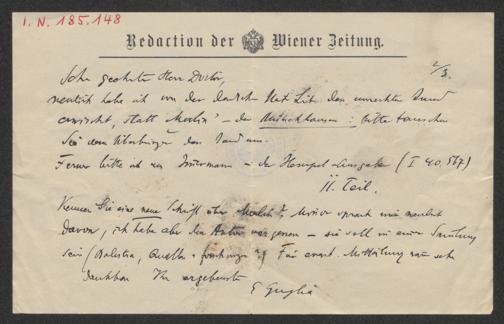 I. N. 185.148
Redaction der Wiener Zeitung.
2/3.
Sehr geehrter Herr Doctor,
neulich habe ich von der deutsch. Nat. Lit. den unrechten Band
erwischt, statt Merlin' – den Münchhausen: bitte tauschen
Sie dem Überbringer den Band um.
Ferner bitte ich um Immermann – in der Hempel Ausgabe (I 40.567)
II. Teil.
Kennen Sie eine neue Schrift über Merlin? Minor sprach mir neulich
davon, ich habe aber den Autor vergessen – sie soll in einer Sammlung
sein (Palestra, Quellen u forschungen?) Für event. Mitteilung wäre sehr
dankbar Ihr ergebenster
E Guglia